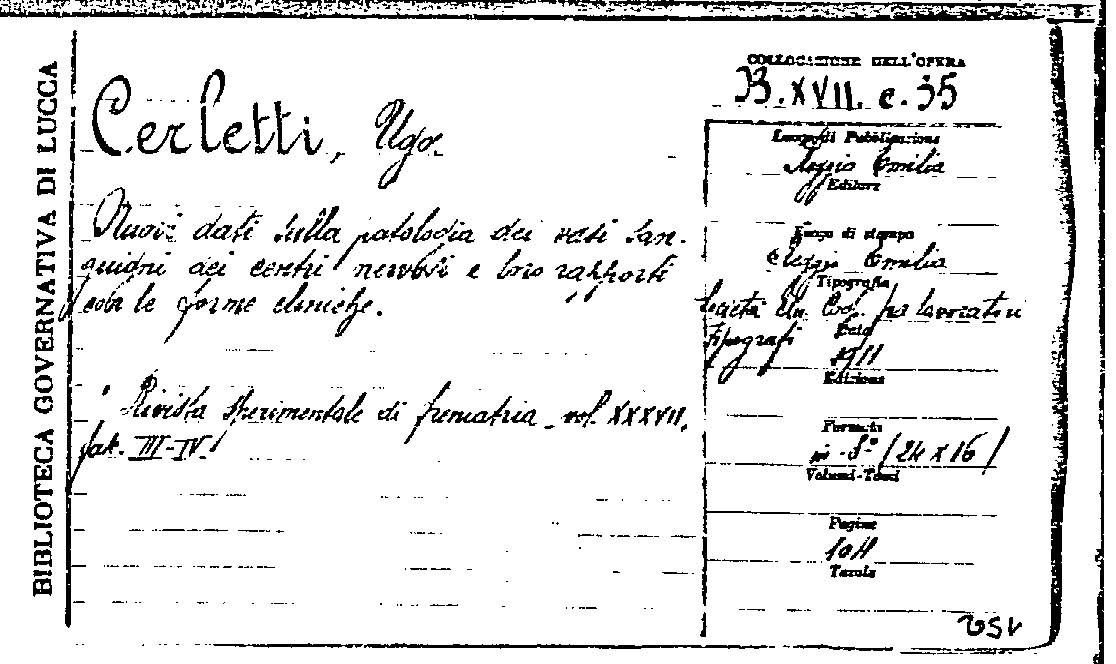 BIBLIOTECA GOVERNATIVA DI LUCCA
COLLOCAZIONE DELL'OPERA
B.XVII. e. 35
Cerletti, Ugo.
Nuovi dati sulla patologia dei vasi san-
guigni dei centri nervosi e loro rapporti
con le forme cliniche.
Rivista sperimentale di freniatria vol. XXXVII,
fak. III-IV
Luogo di Pubblicazione
Reggio Emilia
Editore
Luogo di stampa
Reggio Emilia
Tipografia
Società An. Coop. fra lavoratori
tipografi
Data
1911
Edizione
Formato
in-8° (24 x 16)
Volumi-Tomi
Pagine
104
Tavole
152